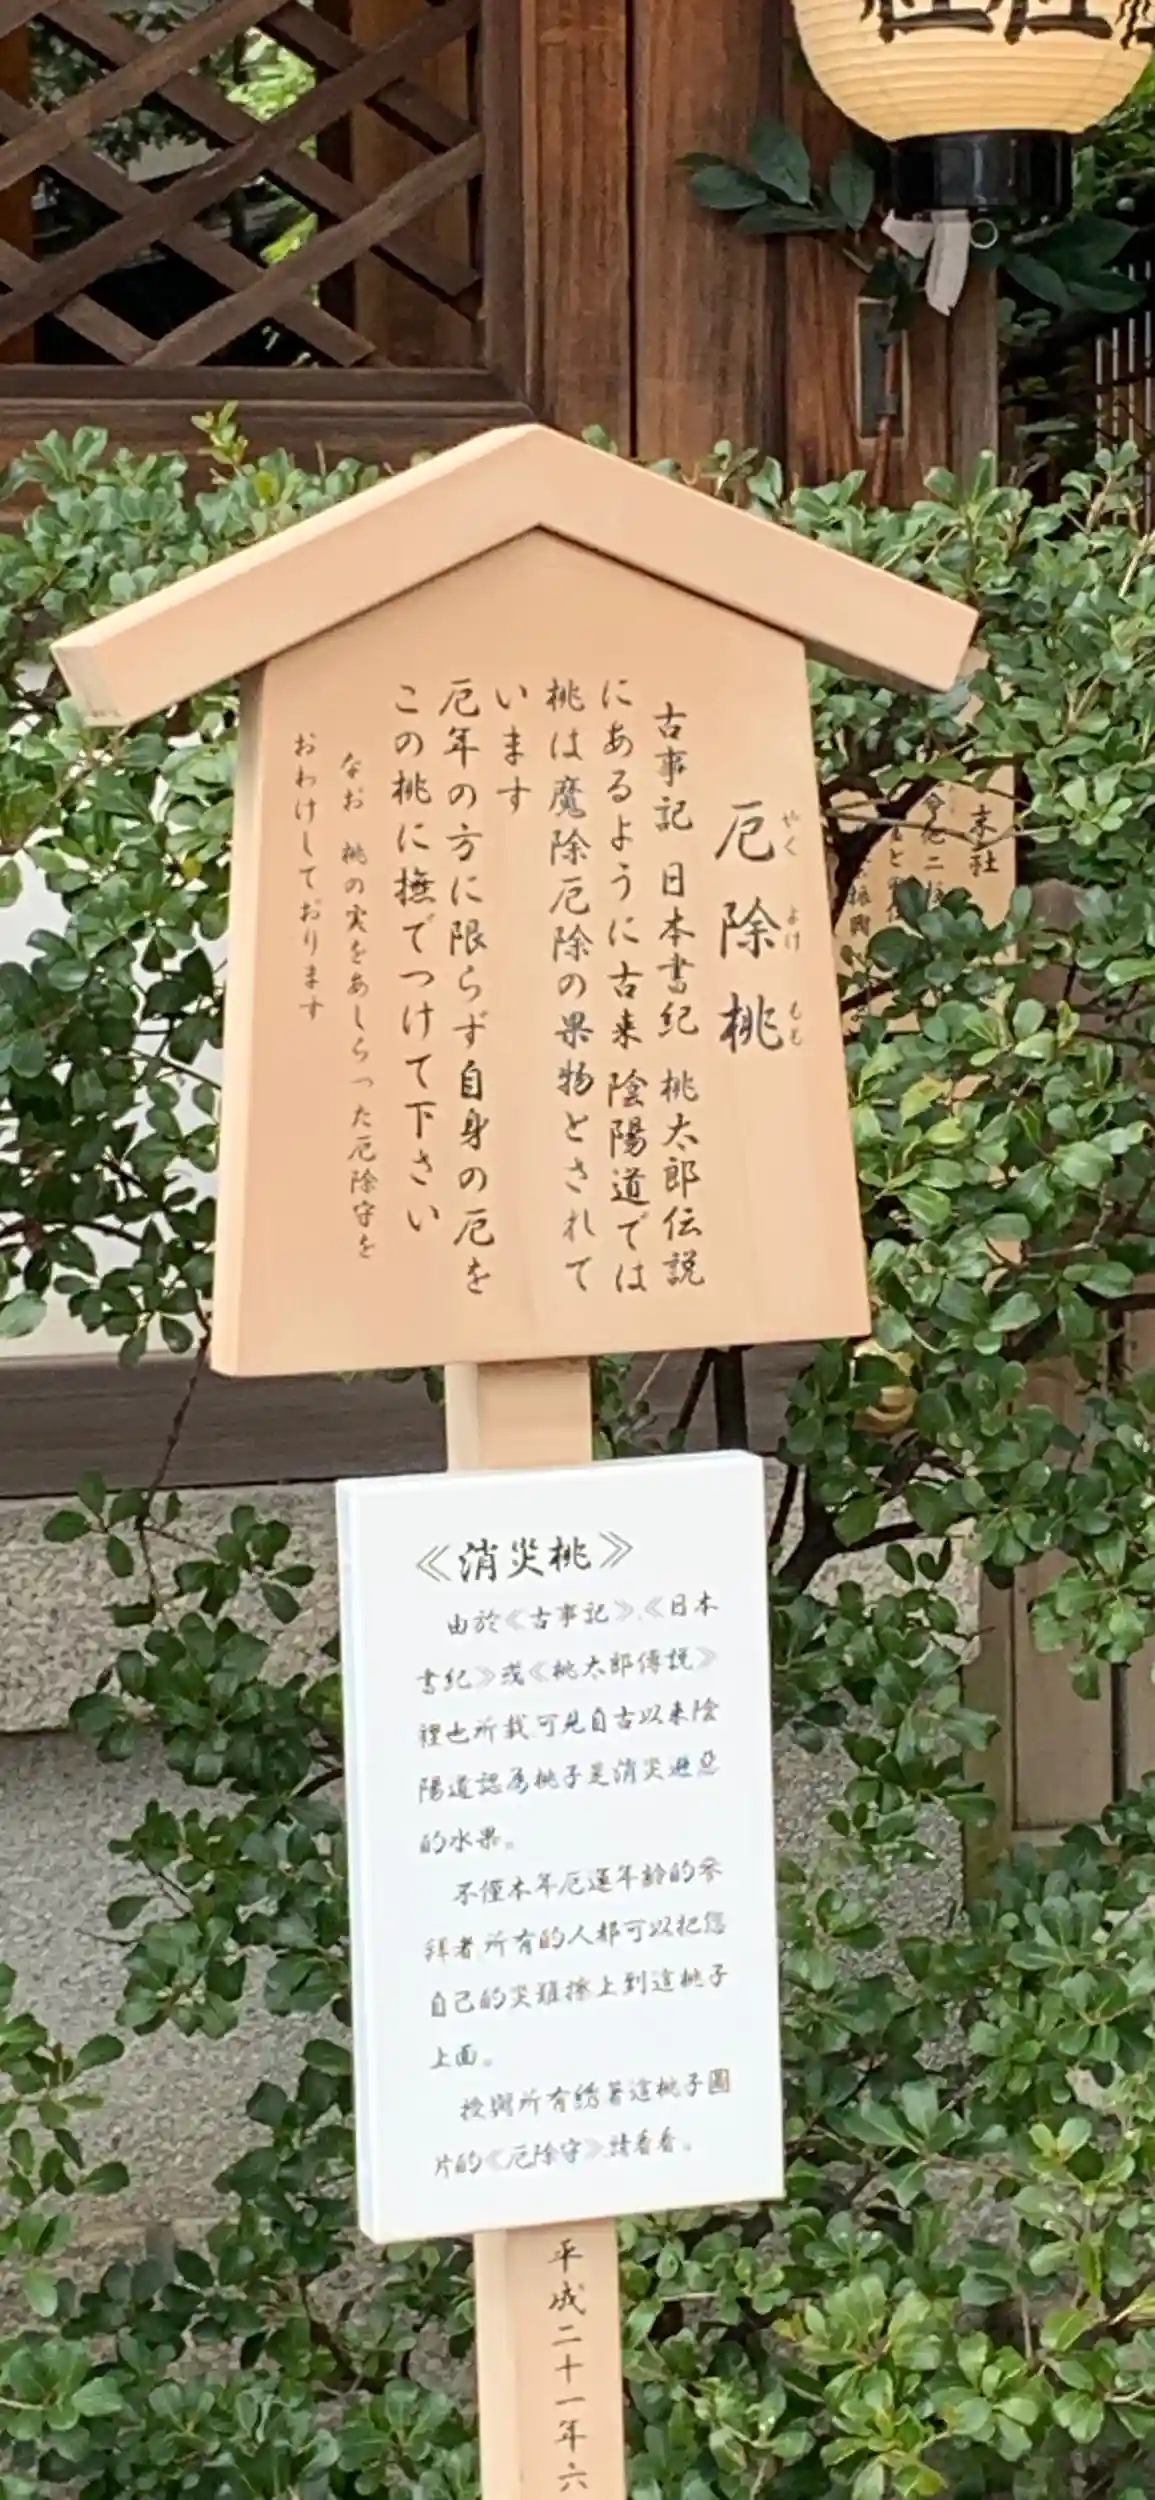 厄除桃
やくよけもも
古事記 日本書紀 桃太郎伝説
にあるように古来 陰陽道では
桃は魔除厄除の果物とされて
います
厄年の方に限らず自身の厄を
この桃に撫でつけて下さい
なお 桃の実をあしらった厄除守を
おわけしております
末社
《消災桃》
由於《古事記》、《日本
書紀》或《桃太郎傳說》
裡也所載可見自古以来陰
陽道認為桃子是消災避惡
的水果。
不僅本年厄運年齡的參
拜者所有的人都可以把您
自己的災難擦上到這桃子
上面。
授與所有綉著這桃子圖
片的《厄除守》請看看。
平成二十一年六